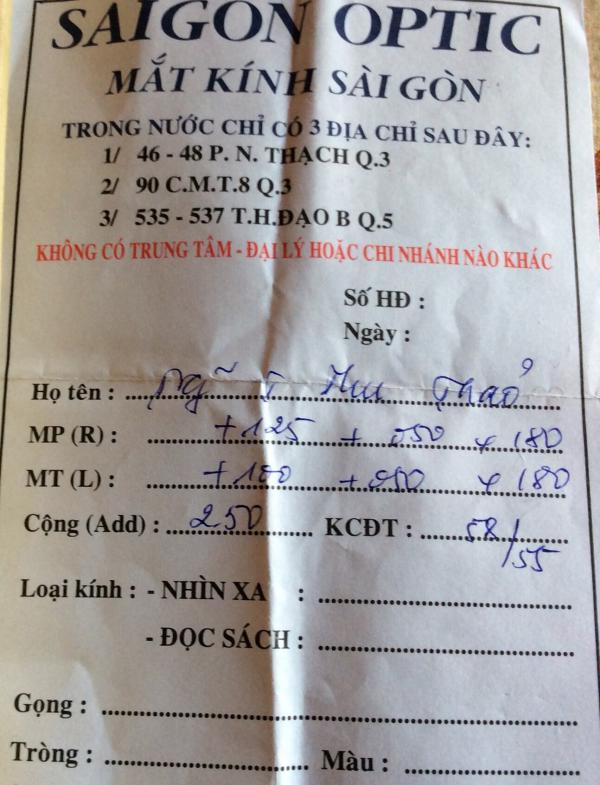 SAIGON OPTIC
MẮT KÍNH SÀI GÒN
TRONG NƯỚC CHỈ CÓ 3 ĐỊA CHỈ SAU ĐÂY:
1/ 46 - 48 P. N. THẠCH Q.3
2/ 90 C.M.T.8 Q.3
3/ 535 - 537 T.H.ĐẠO B Q.5
KHÔNG CÓ TRUNG TÂM - ĐẠI LÝ HOẶC CHI NHÁNH NÀO KHÁC
Số HĐ :
Ngày :
Họ tên : Ngũ T Thu Thảo
MP (R) : +125 + 050 x 180
MT (L) : +100 +050 x 180
Cộng (Add) : 250 KCĐT : 58/55
Loại kính : - NHÌN XA :
- ĐỌC SÁCH :
Gọng :
Tròng : Màu :